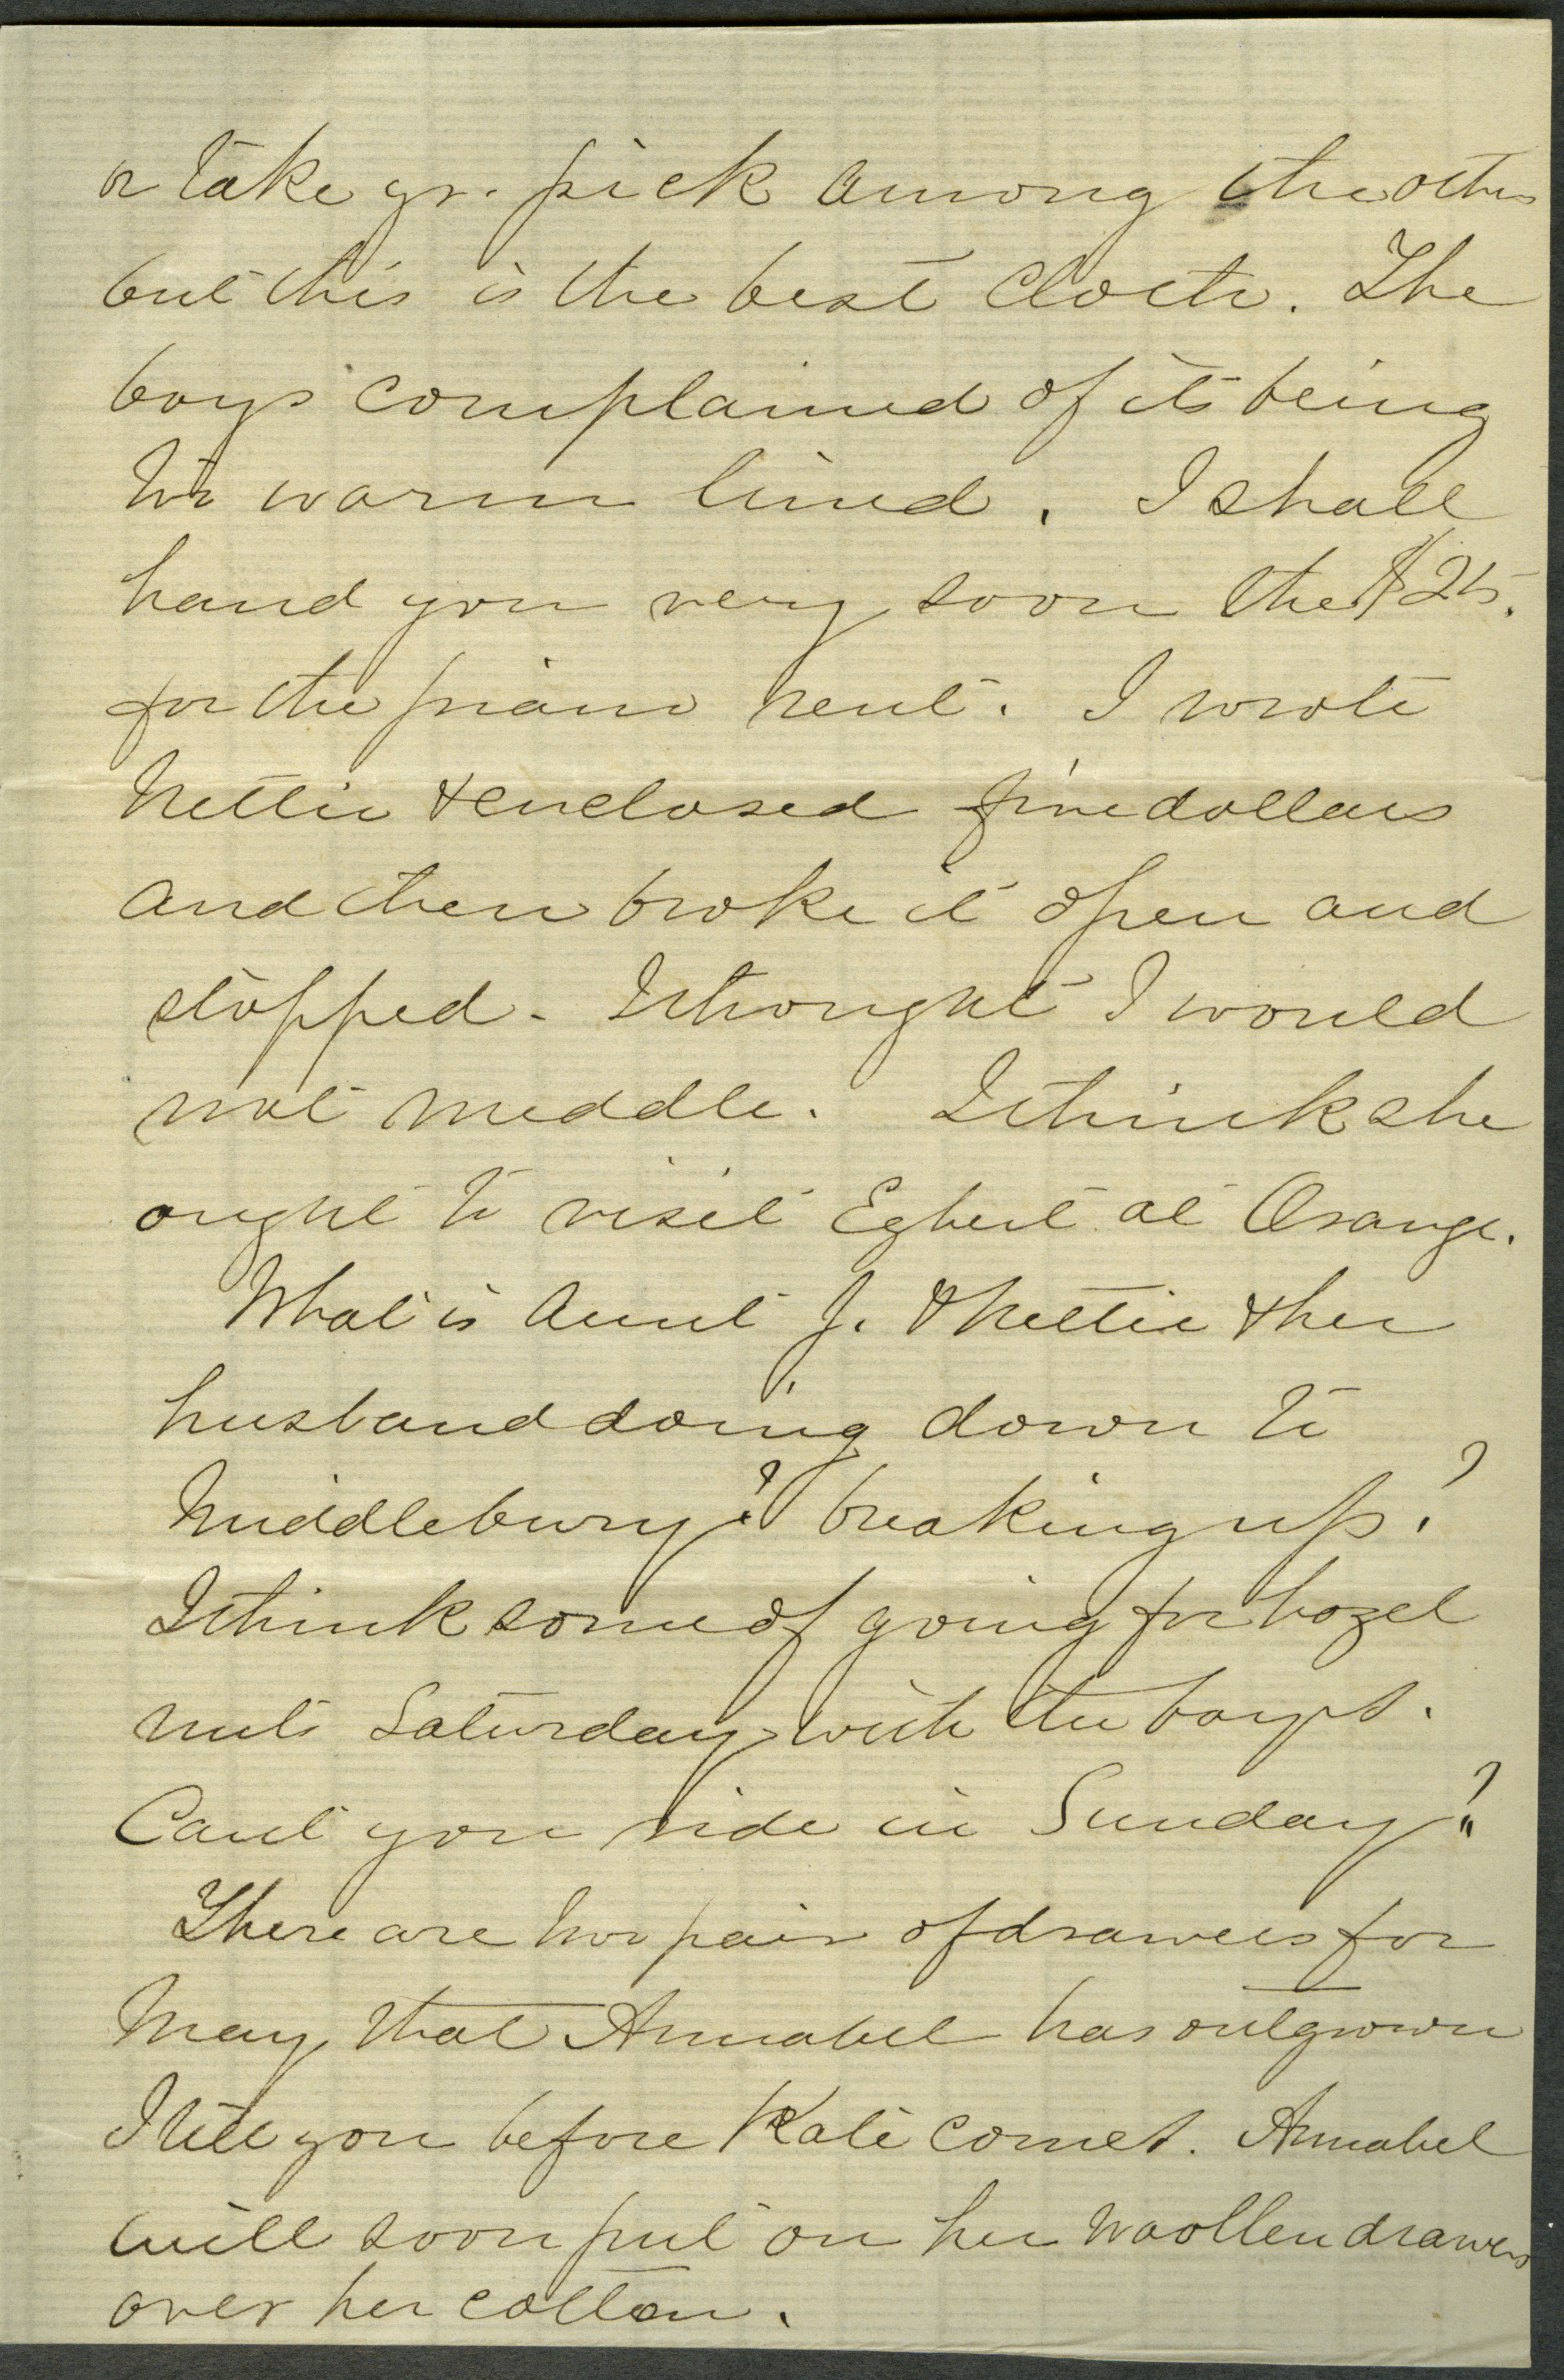 or take yr. pick among the others
but this is the best cloth. The
boys complained of its being
too warm lined. I shall
hand you very soon the $25.
for the piano rent. I wrote
Nettie & enclosed five dollars
and then broke it open and
stopped - I thought I would
not meddle. I think she
ought to visit Egbert at Orange.
What is Aunt J. & Nettie & her
husband doing down to
Middlebury? breaking up?
I think some of going for hazel
nuts Saturday with the boys.
Cant you ride in Sunday?
There are two pair of drawers for
May that Annabel has outgrown
I tell you before Kate comes. Annabel
will soon put on her woollen drawers
over her cotton.